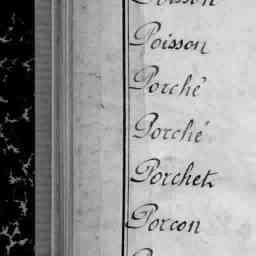 Poisson
Poisson
Porché
Porché
Porchet
Porcon